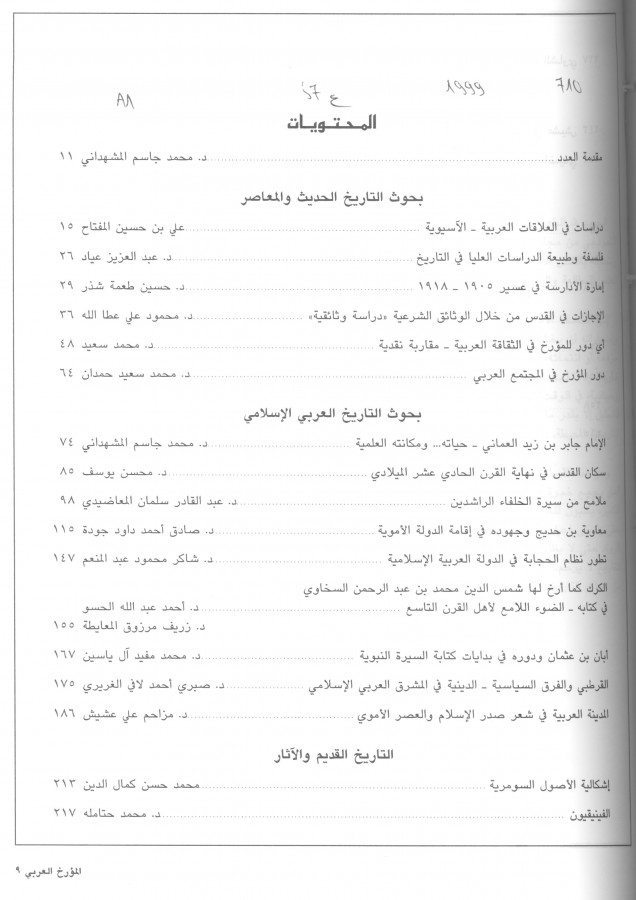 710 1999 ع 57 ٨١
المحتويات
مقدمة العدد ........ د. محمد جاسم المشهداني ١١
بحوث التاريخ الحديث والمعاصر
دراسات في العلاقات العربية ـ الآسيوية ........ علي بن حسين المفتاح ١٥
فلسفة وطبيعة الدراسات العليا في التاريخ ........ د. عبد العزيز عياد ٢٦
إمارة الأدارسة في عسير ١٩٠٥ ـ ١٩١٨ ........ د. حسين طعمة شذر ٢٩
الإجازات في القدس من خلال الوثائق الشرعية «دراسة وثائقية» ........ د. محمود علي عطا الله ٣٦
أي دور للمؤرخ في الثقاقة العربية ـ مقاربة نقدية ........ د. محمد سعيد ٤٨
دور المؤرخ في المجتمع العربي ........ د. محمد سعيد حمدان ٦٤
بحوث التاريخ العربي الإسلامي
الإمام جابر بن زيد العماني ـ حياته... ومكانته العلمية ........ د. محمد جاسم المشهداني ٧٤
سكان القدس في نهاية القرن الحادي عشر الميلادي ........ د. محسن يوسف ٨٥
ملامح من سيرة الخلفاء الراشدين ........ د. عبد القادر سلمان المعاضيدي ٩٨
معاوية بن حديج وجهوده في إقامة الدولة الأموية ........ د. صادق أحمد داود جودة ١١٥
تطور نظام الحجابة في الدولة العربية الإسلامية ........ د. شاكر محمود عبد المنعم ١٤٧
الكرك كما أرخ لها شمس الدين محمد بن عبد الرحمن السخاوي
في كتابه ـ الضوء اللامع لأهل القرن التاسع ........ د. أحمد عبد الله الحسو
د. زريف مرزوق المعايطة ١٥٥
أبان بن عثمان ودوره في بدايات كتابة السيرة النبوية ........ د. محمد مفيد آل ياسين ١٦٧
القرطبي والفرق السياسية ـ الدينية في المشرق العربي الإسلامي ........ د. صبري أحمد لافي الغريري ١٧٥
المدينة العربية في شعر صدر الإسلام والعصر الأموي ........ د. مزاحم علي عشيش ١٨٦
التاريخ القديم والآثار
إشكالية الأصول السومرية ........ محمد حسن كمال الدين ٢١٣
الفينيقيون ........ د. محمد حتامله ٢١٧
المؤرخ العربي ٩